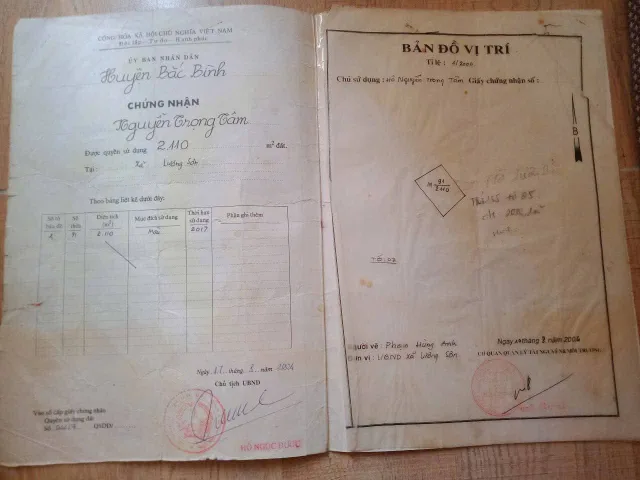 CỘNG HÒA XÃ HỘI CHỦ NGHĨA VIỆT NAM
Độc lập - Tự do - Hạnh phúc
ỦY BAN NHÂN DÂN
Huyện Bắc Bình
CHỨNG NHẬN
Nguyễn Trọng Tâm
Được quyền sử dụng 2.110 m² đất.
Tại : Xã Lương Sơn
Theo bảng liệt kê dưới đây:
Số tờ bản đồ Số thửa Diện tích (m²) Mục đích sử dụng Thời hạn sử dụng Phần ghi thêm
2 91 2.110 Màu 2017
Ngày 11 tháng 5 năm 2004
Chủ tịch UBND
HỒ NGỌC
Vào sổ cấp giấy chứng nhận
Quyền sử dụng đất
Số QSDĐ/
BẢN ĐỒ VỊ TRÍ
Tỉ lệ : 1/2000
Chủ sử dụng : Hộ Nguyễn Trọng Tâm Giấy chứng nhận số :
B
M 91
2110
TỜ: 02
Người vẽ : Phạm Hùng Anh
Đơn vị : UBND Xã Lương Sơn
Ngày tháng 3 năm 2004
CƠ QUAN QUẢN LÝ TÀI NGUYÊN & MÔI TRƯỜNG